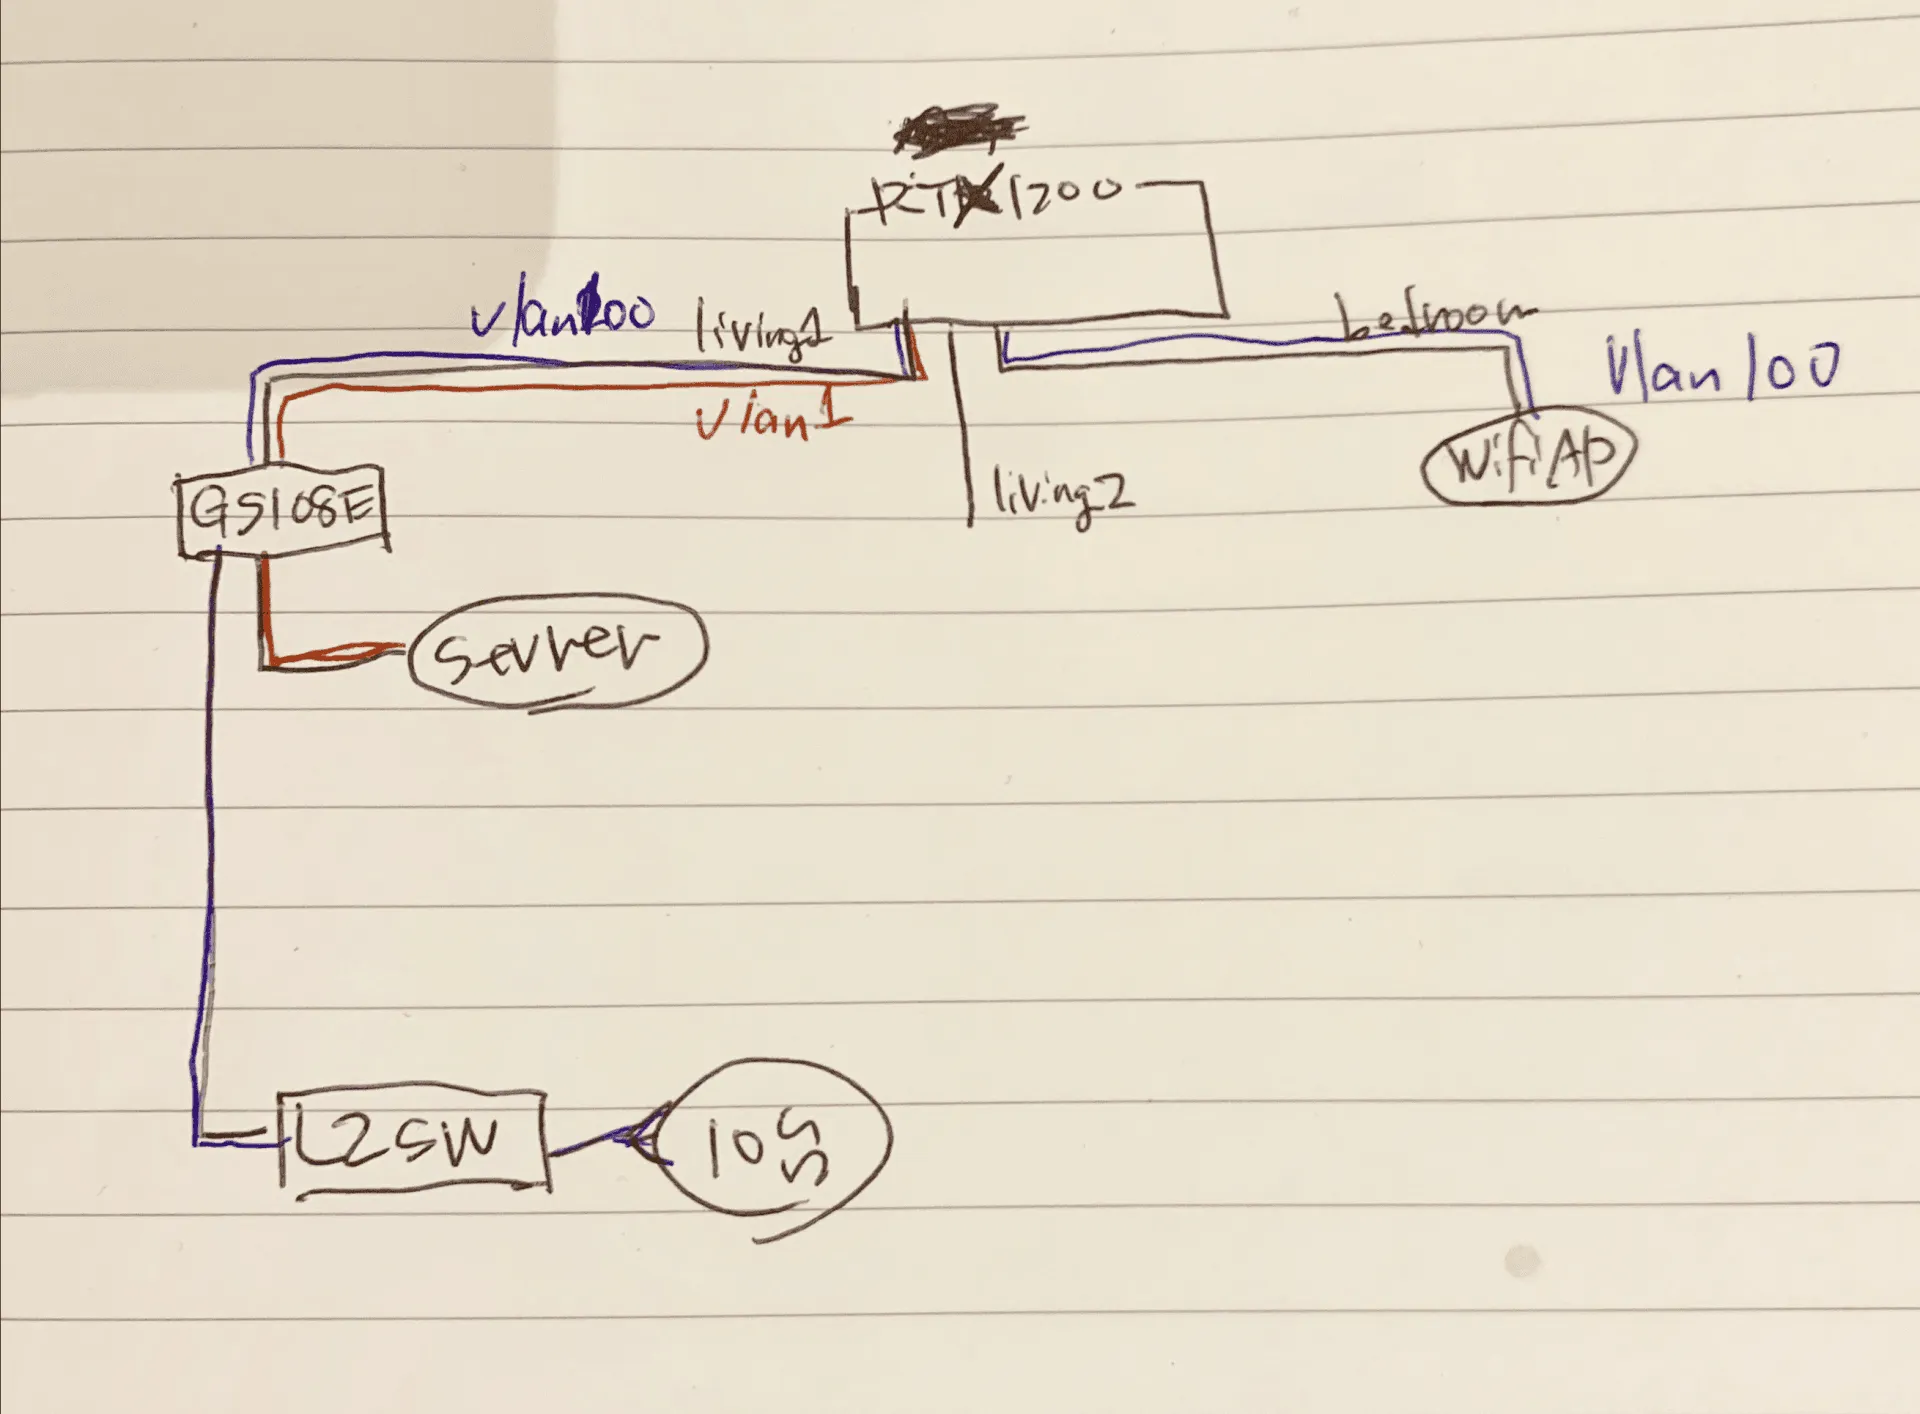 RTX1200
vlan100
living1
bedroom
vlan100
vlan1
WifiAP
living2
GS108E
Server
L2SW